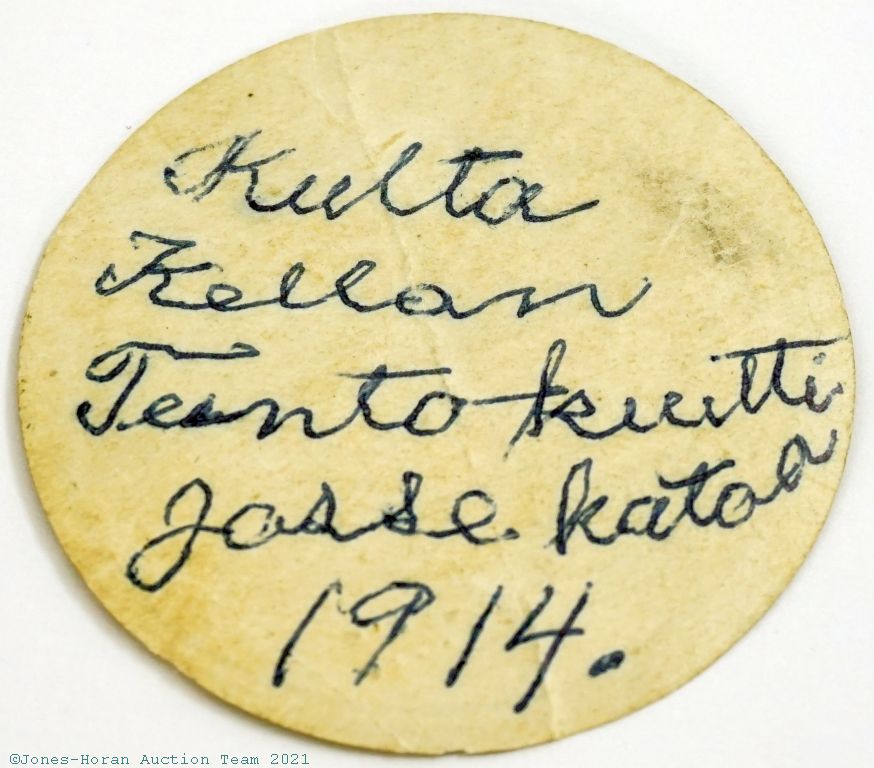 Kulta
Kellan
Tunto-kuitti
Josse katoa
1914.
©Jones-Horan Auction Team 2021